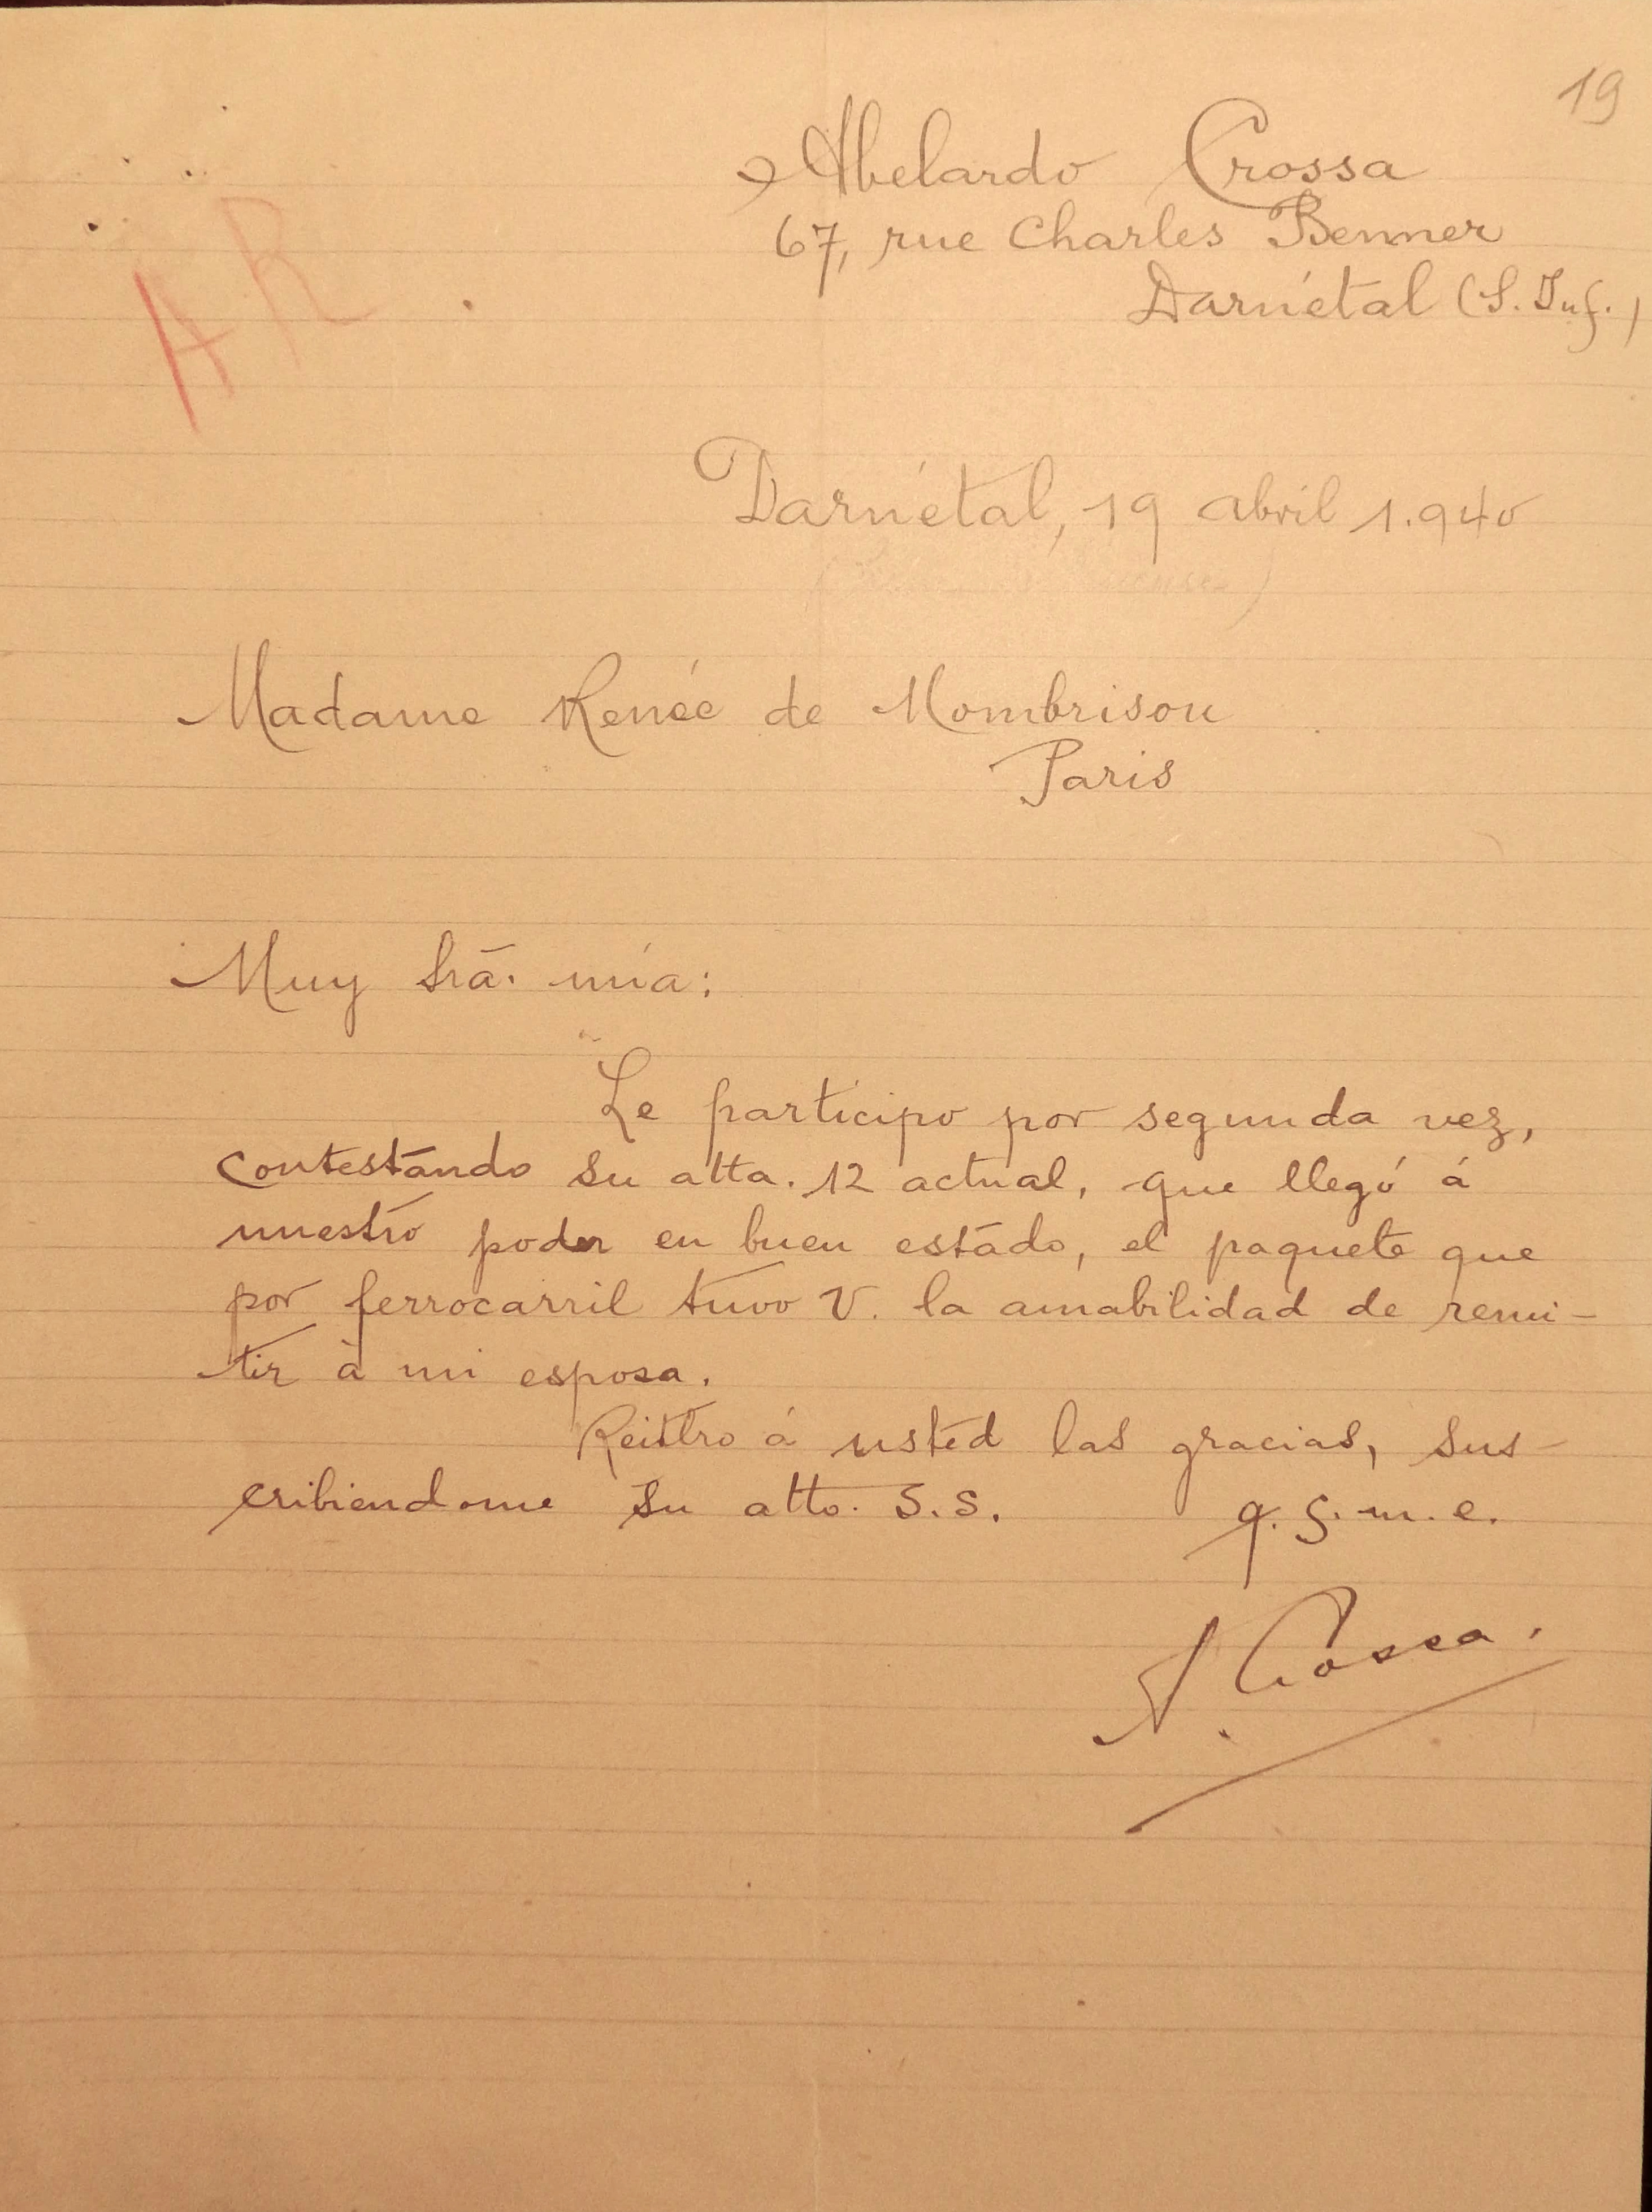 19
Abelardo Crossa
67, rue Charles Benner
Darnétal (S. Inf.)
AR
Darnétal, 19 abril 1.940
Madame Renée de Mombrison
Paris
Muy Srā. mía:
Le participo por segunda vez,
contestando su atta. 12 actual, que llegó á
nuestro poder en buen estado, el paquete que
por ferrocarril tuvo V. la amabilidad de remi-
tir à mi esposa.
Reitero á usted las gracias, sus-
cribiendome su atto. S.S. q. s. m. e.
A. Crossa.